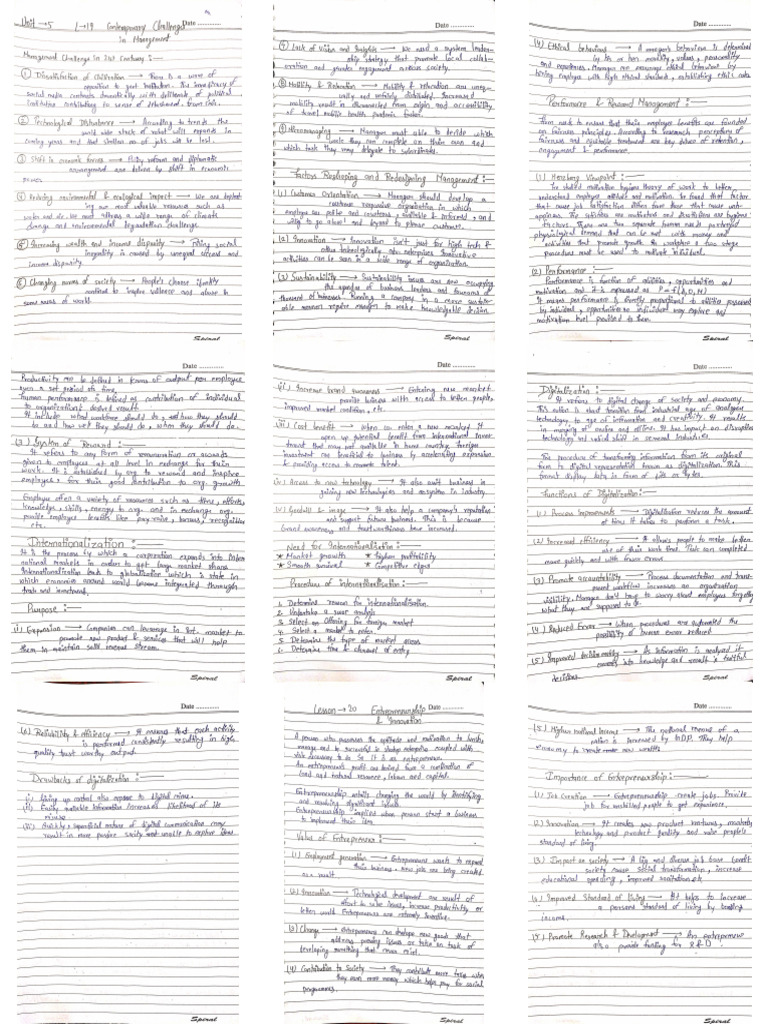 Unit → 5 L → 19 Contemporary Challenges Date
in Management
Management Challenge in 21st Century :—
① Dissatisfaction of Civilization → There is a wave of
opposition to great institution. The immediacy of
social media contrasts dramatically with
institutions contributing to sense of
② Technological Disturbance → According to trends the
world wide stock of robot will expands in
coming years and that millions of jobs will be lost.
③ Shift in economic forces → Military, and diplomatic
arrangement are driven by shift in economic
power.
④ Reducing environmental & ecological impact → We are deplet-
ing our most valuable resources such as
water and air. We must address a wide range of climate
change and environmental degradation challenge.
⑤ Increasing wealth and income disparity → Rising social
inequality is caused by unequal access and
income disparity.
⑥ Changing norms of society → People's choose identity
continue to inspire violence and abuse in
some areas of world.
Spiral
Date
⑦ Lack of Vision and Insights → We need a system leader-
ship strategy that promote local collab-
oration and greater engagement across society.
⑧ Mobility & Relocation → Mobility & relocation are uneq-
ually and unfairly distributed. Increased
mobility result in disconnected from origin and accessibility
of travel makes health pandemic easier.
⑨ Micromanaging → Managers must able to decide which
work they can complete on their own and
which task they may delegate to subordinates.
Factors Reshaping and Redesigning Management :—
(1) Customer Orientation → Managers should develop a
customer responsive organization in which
employees are polite and courteous, available & informed, and
willing to go above and beyond to please customer.
(2) Innovation → Innovation isn't just for high tech &
other technologically adv. enterprises. Innovative
activities can be seen in a wide range of organization.
(3) Sustainability → Sustainability issues are now occupying
the agendas of business leaders and thousands of
business. Running a company in a more sustain-
able manner require managers to make knowledgeable decision.
Spiral
Date
(4) Ethical behaviour → A manager's behaviour is determined
by his or her morality, values, personality
and experiences. Managers can encourage ethical behaviour by
hiring employees with high ethical standard, establishing ethics code.
Performance & Reward Management :—
Firm needs to ensure that their employee benefits are founded
on fairness principles. According to research perceptions of
fairness and equitable treatment are key drivers of retention,
engagement & performance.
(1) Herzberg Viewpoint :—
He studied motivation hygiene theory of work to better
understand employee attitude and motivation. He found that factors
that cause job satisfaction differ from those that cause
The satisfiers are motivators and dissatisfiers are hygiene
factors. There are two separate human needs
physiological demand that can be met with money and
activities that promote growth. In workplace a two stage
procedure must be used to motivate individual.
(2) Performance :—
Performance is function of abilities, opportunities and
motivation, and it is expressed as P = f(A,O,M)
It means performance is directly proportional to abilities possessed
by individual, opportunities an individual may explore and
motivation level provided to them.
Spiral
Date
Productivity may be defined in terms of output per employee
over a set period of time.
Human performance is defined as contribution of individual
to organization's desired result.
It include what workforce should do, and how they should
do and how well they should do & when they should do.
(3) System of Reward :—
It refers to any form of remuneration or awards
given to employees at all level in exchange for their
work. It is established by org. to reward and inspire
employees, for their good contribution to org. growth
Employee offer a variety of resources such as time, efforts,
knowledge, skills, energy to org. and in exchange org.
provide employee rewards like pay raise, bonuses, recognition
etc.
Internationalization :—
It is the process by which a corporation expands into inter
national markets in order to get large market share
Internationalization leads to globalization which is state in
which economies around world become integrated through
trade and investment.
Purpose :—
(i) Expansion → Companies can leverage in int. market to
promote new product & services that will help
them in maintain solid revenue stream.
Spiral
Date
(ii) Increase brand awareness → Entering new market
provide business with access to letter people,
improved market condition, etc.
(iii) Cost benefit → When co. enter a new market it
open up potential benefit from international
that may not available in home country. Foreign
investment are beneficial to business by accelerating expansion
& providing access to remote talent.
(iv) Access to new technology → It also assist business in
gaining new technologies and ecosystem in industry.
(v) Goodwill & image → It also help a company's reputation
and support future business. This is because
brand awareness and trustworthiness have increased.
Need for Internationalization :—
★ Market growth ★ Higher profitability
★ Smooth survival ★ Competitive edges
Procedure of internationalization :—
1. Determine reason for internationalisation.
2. Undertake a SWOT analysis
3. Select an Offering for foreign market
4. Select a market to enter
5. Determine the type of market access
6. Determine time & channel of entry
Spiral
Date
Digitalization :—
It refers to digital change of society and economy.
This action is short transition from industrial age of analogue
technology to age of information and creativity. It results
in merging of online and offline. It has impact on disruptive
technology and radical shift in several Industries.
The procedure of transforming information from its original
form to digital representation known as digitalization. This
format display data in form of bits or bytes.
Functions of Digitalization :—
(1) Process Improvements → Digitalization reduces the amount
of time it takes to perform a task.
(2) Increased efficiency → It allows people to make better
use of their work time. Task can completed
more quickly and with fewer errors
(3) Promote accountability → Process documentation and trans-
parent workflow increases an organisation
visibility. Manager don't have to worry about employees forgetting
what they are supposed to do.
(4) Reduced Error → When procedures are automated the
possibility of human error reduced
(5) Improved decision making → As information is analyzed it
converts into knowledge and result in fruitful
decisions.
Spiral
Date
(6) Reliability & efficiency → It ensures that each activity
is performed consistently resulting in high
quality trust worthy output.
Drawbacks of digitalization :—
(i) Giving up control also expose to digital crime.
(ii) Easily available information increases likelihood of its
misuse
(iii) Quickly & superficial nature of digital communication may
result in more passive society and unable to explore idea.
Spiral
Lesson → 20 Entrepreneurship Date
& Innovation
A person who possesses the aptitude and motivation to launch,
manage and be successful in startup enterprise coupled with
risk accuracy to do so it is an entrepreneur.
An entrepreneur's profit are derived from a combination of
land and natural resource, labour and capital.
Entrepreneurship entails changing the world by identifying
and resolving significant issues.
Entrepreneurship implies when person start a business
to implement their idea.
Value of Entrepreneur :—
(1) Employment generation → Entrepreneurs wants to expand
their business, new jobs are being created
as a result.
(2) Innovation → Technological development are result of
effort to solve issues, increase productivity, or
better world. Entrepreneurs are extremely inventive.
(3) Change → Entrepreneurs can develop new goods that
address pressing issues or take on task of
developing something that never exist.
(4) Contribution to Society → They contribute more taxes when
they earn more money which helps pay for social
programmes.
Spiral
Date
(5) Higher national income → The national means of a
nation is increased by GDP. They help
economy to create more new wealth.
Importance of Entrepreneurship :—
(1) Job Creation → Entrepreneurship create jobs. Provide
job for unskilled people to get experience.
(2) Innovation → It creates new product ventures, marketing,
technology and product quality and raise people's
standard of living.
(3) Impact on society → A big and diverse job base benefit
society cause social transformation, increase
educational spending, improved sanitation etc
(4) Improved Standard of living → It helps to increase
a persons standard of living by boosting
income.
(5) Promote Research & Development → An entrepreneur
also provide funding for R & D.
Spiral